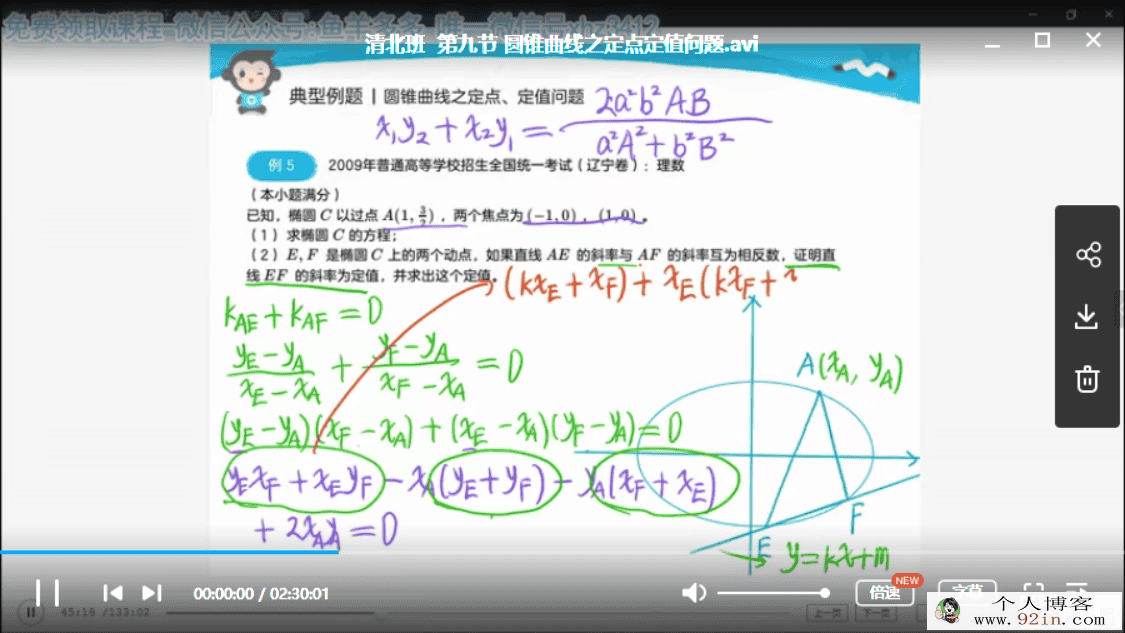 免费领取课程 微信公众号:鱼羊多多 唯一微信号xbz3412
清北班 第九节 圆锥曲线之定点定值问题.avi
典型例题 | 圆锥曲线之定点、定值问题
x₁y₂ + x₂y₁ = 2a²b²AB / (a²A² + b²B²)
例 5 2009年普通高等学校招生全国统一考试(辽宁卷):理数
(本小题满分)
已知,椭圆 C 以过点 A(1, 3/2),两个焦点为 (−1,0),(1,0)。
(1)求椭圆 C 的方程;
(2)E, F 是椭圆 C 上的两个动点,如果直线 AE 的斜率与 AF 的斜率互为相反数,证明直
线 EF 的斜率为定值,并求出这个定值。
(kx_E + x_F) + x_E(kx_F + x
k_AE + k_AF = 0
(y_E − y_A)/(x_E − x_A) + (y_F − y_A)/(x_F − x_A) = 0
A(x_A, y_A)
(y_E − y_A)(x_F − x_A) + (x_E − x_A)(y_F − y_A) = 0
y_E x_F + x_E y_F − x_A(y_E + y_F) − y_A(x_F + x_E)
+ 2x_A y_A = 0
F
E
y = kx + m
00:00:00 / 02:30:01
倍速
NEW
字幕
45:18 /133:02
上一页
下一页
个人博客
www.92in.com